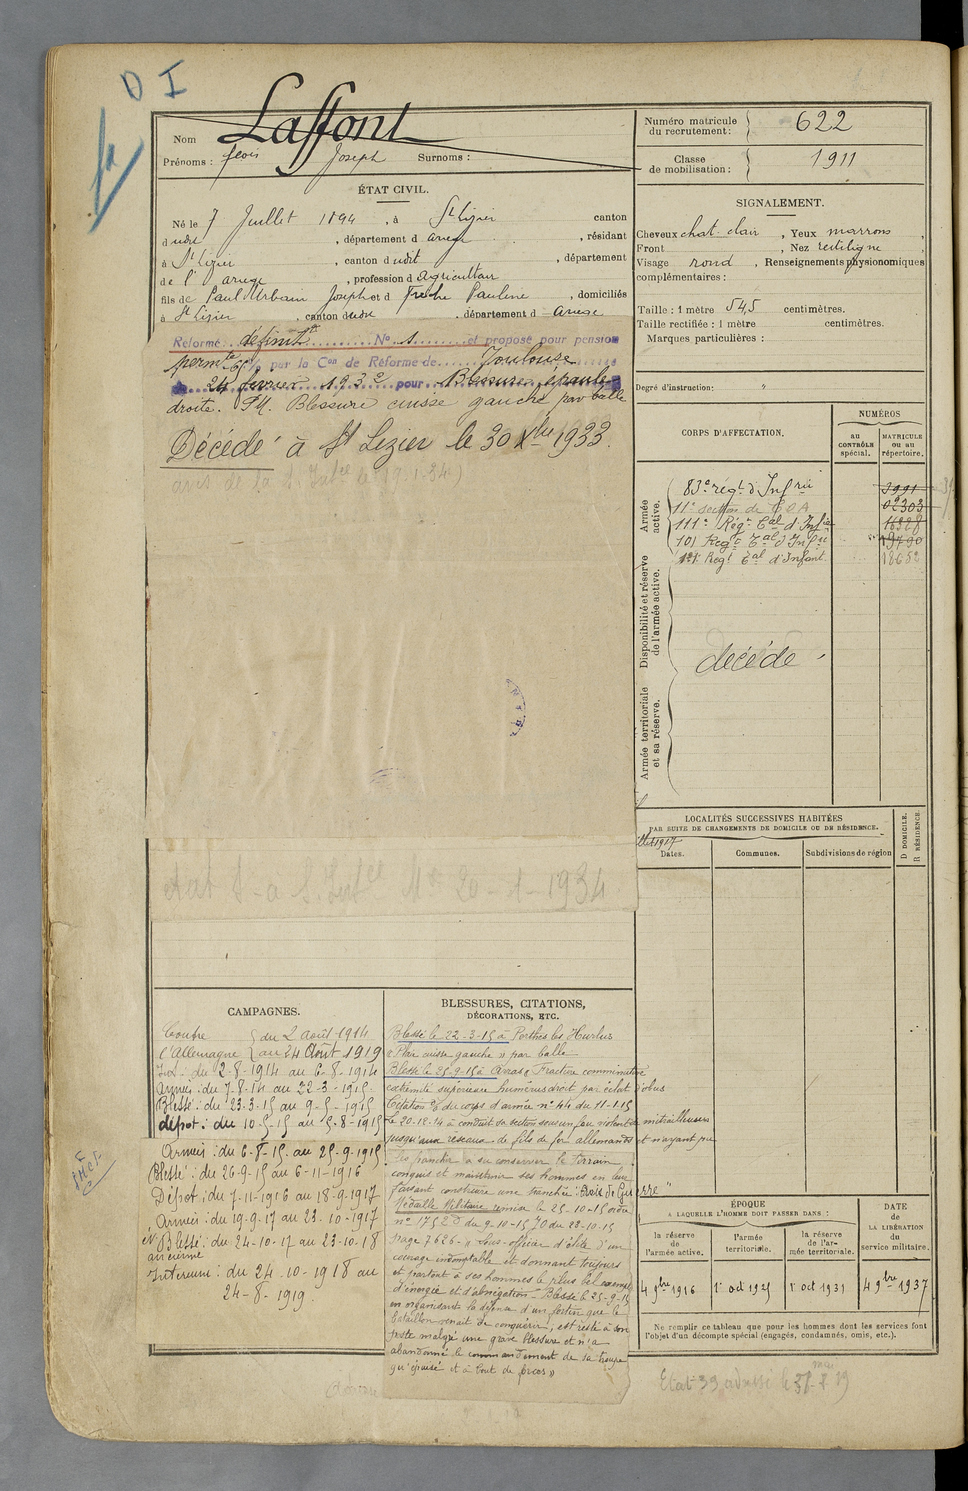 D I
Nom Laffont
Prénoms : Jean Joseph Surnoms :
Numéro matricule du recrutement : 622
Classe de mobilisation : 1911
ÉTAT CIVIL.
Né le 7 Juillet 1894, à St Lizier canton
dudit, département d Ariege, résidant
à St Lizier, canton dudit, département
de l'Ariege, profession d agriculteur
fils de Paul Urbain Joseph et d Pauline, domiciliés
à St Lizier, canton dudit, département d Ariege
Réformé définitt N° 1 et proposé pour pension
permte 65% par la Con de Réforme de Toulouse
du 24 février 1932 pour Blessure épaule
droite. Blessure cuisse gauche par balle
Décédé à St Lizier le 30 Xbre 1933.
avis de la
20-1-1934
SIGNALEMENT.
Cheveux chat. clair, Yeux marrons,
Front , Nez rectiligne,
Visage rond, Renseignements physionomiques
complémentaires :
Taille : 1 mètre 54,5 centimètres.
Taille rectifiée : 1 mètre centimètres.
Marques particulières :
Degré d'instruction : "
CORPS D'AFFECTATION.
NUMÉROS
au CONTRÔLE spécial.
MATRICULE ou au répertoire.
Armée active.
Disponibilité et réserve de l'armée active.
Armée territoriale et sa réserve.
83e régt d'Infrie 3991
11e section de C O A 02303
111e Régt Cal d'Infie 16328
101 Regt Tal d'Infie
121 Regt Tal d'Infant. 18682
décédé
LOCALITÉS SUCCESSIVES HABITÉES
PAR SUITE DE CHANGEMENTS DE DOMICILE OU DE RÉSIDENCE.
D DOMICILE.
R RÉSIDENCE.
1917
Dates.
Communes.
Subdivisions de région
CAMPAGNES.
Contre l'Allemagne { du 2 Août 1914
au 24 Août 1919
Int. du 2-8-1914 au 6-8-1914
Armées : du 7-8-14 au 22-3-1915
Blessé : du 23-3-15 au 9-5-1915
dépot : du 10-5-15 au 5-8-1915
Armées : du 6-8-15 au 25-9-1915
Blessé : du 26-9-15 au 6-11-1916
Dépot : du 7-11-1916 au 18-9-1917
Armées : du 19-9-17 au 23-10-1917
Ev. Blessé : du 24-10-17 au 23-10-18
ancienne
Intérieur : du 24-10-1918 au
24-8-1919
BLESSURES, CITATIONS,
DÉCORATIONS, ETC.
Blessé le 22-3-15 à Perthes les Hurlus
« Plaie cuisse gauche » par balle
Blessé le 25-9-15 à Arras « Fracture comminutive
extrémité supérieure humérus droit par éclat d'obus
Citation O/ du corps d'armée n° 44 du 11-1-15
Le 20-12-14 à conduit sa section sous un feu violent de mitrailleuses
jusqu'aux réseaux de fils de fer allemands et n'ayant pu
les franchir a su conserver le terrain
conquis et maintenir ses hommes en leur
faisant construire une tranchée : Croix de Guerre "
Médaille Militaire remise le 25-10-15 ordre
n° 1752 D du 9-10-15 JO du 23-10-15
page 7626 - « Sous-officier d'élite d'un
courage indomptable et donnant toujours
et partout à ses hommes le plus bel exemple
d'énergie et d'abnégation. Blessé le 25-9-15
en organisant la défense d'un fortin que le
bataillon venait de conquérir, est resté à son
poste malgré une grave blessure et n'a
abandonné le commandement de sa troupe
qu'épuisé et à bout de forces »
ÉPOQUE
A LAQUELLE L'HOMME DOIT PASSER DANS :
la réserve de l'armée active.
l'armée territoriale.
la réserve de l'armée territoriale.
DATE de LA LIBÉRATION du service militaire.
4 9bre 1916
1er oct 1925
1er oct 1931
4 9bre 1937
Ne remplir ce tableau que pour les hommes dont les services font
l'objet d'un décompte spécial (engagés, condamnés, omis, etc.).